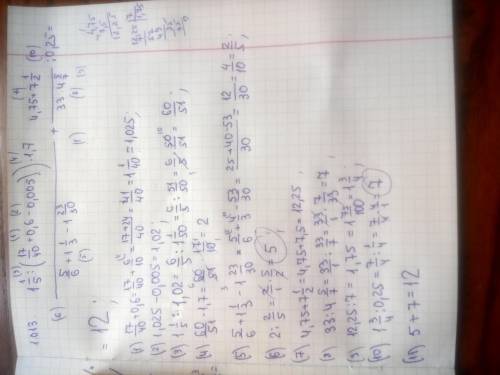 1.013 (1 1/5 : (17/40 + 0,6 - 0,005)) · 1,7 / (5/6 + 1 1/3 - 1 23/30) + (4,75 + 7 1/2) / (33 : 4 5/7) : 0,25 =
= 12;
1) 17/40 + 0,6 = 17/40 + 6/10 = (17+24)/40 = 41/40 = 1 1/40 = 1,025;
2) 1,025 - 0,005 = 1,02;
3) 1 1/5 : 1,02 = 6/5 : 1 1/50 = 6/5 : 51/50 = 6/5 · 50/51 = 60/51
4) 60/51 · 1,7 = 60/51 · 17/10 = 2
5) 5/6 + 1 1/3 - 1 23/30 = 5/6 + 4/3 - 53/30 = (25+40-53)/30 = 12/30 = 4/10 = 2/5;
6) 2 : 2/5 = 2/1 · 5/2 = 5
7) 4,75 + 7 1/2 = 4,75 + 7,5 = 12,25;
8) 33 : 4 5/7 = 33 : 33/7 = 33/1 · 7/33 = 7
9) 12,25 : 7 = 1,75 = 1 75/100 = 1 3/4
10) 1 3/4 : 0,25 = 7/4 : 1/4 = 7/4 · 4/1 = 7
11) 5 + 7 = 12